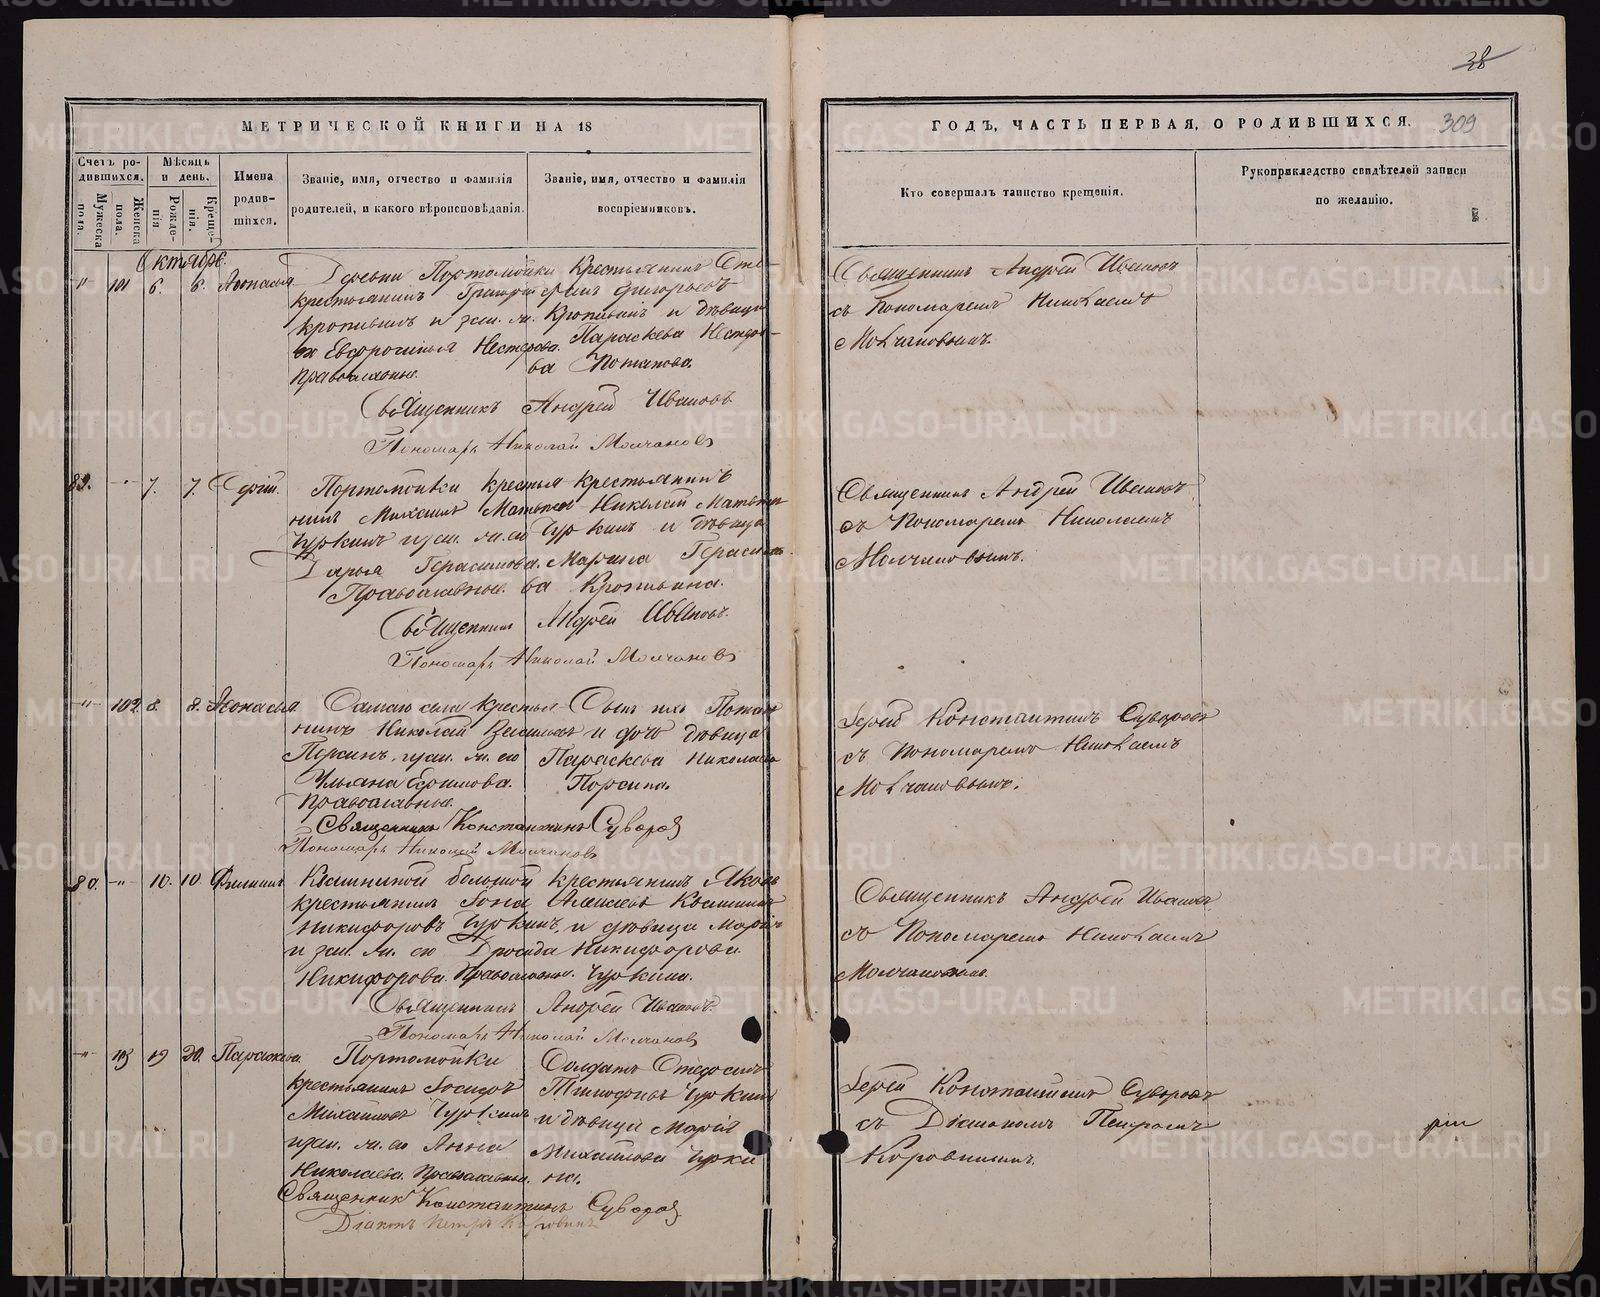 38
МЕТРИЧЕСКОЙ КНИГИ НА 18
ГОДЪ, ЧАСТЬ ПЕРВАЯ, О РОДИВШИХСЯ.
309
Счетъ родившихся.
Мѣсяцъ и день.
Мужеска пола.
Женска пола.
Рожденія
Крещенія.
Имена родившихся.
Званіе, имя, отчество и фамилія родителей, и какого вѣроисповѣданія.
Званіе, имя, отчество и фамилія воспріемниковъ.
Кто совершалъ таинство крещенія.
Рукоприкладство свидѣтелей записи по желанію.
Октябрь.
" 101 6. 6.
Деревни Портомойки
крестьянинъ Григорій
Кропивинъ и зак. ж.
Евфросинья Нестерова.
Православные.
Крестьянинъ
Григорьевъ
Кропивинъ и дѣвица
Параскева Несторова
Потапова.
Священникъ Андрей Ивановъ
съ Пономаремъ Николаемъ
Молчановымъ.
Священникъ Андрей Ивановъ
Пономарь Николай Молчановъ
7. 7. Сергій.
Портомойки крестьянинъ
Михаилъ
Чуркинъ и зак. ж. ею
Дарья Герасимова.
Православные.
Крестьянинъ
Николай
Чуркинъ и дѣвица
Марина Герасимова
Кропивина.
Священникъ Андрей Ивановъ
съ Пономаремъ Николаемъ
Молчановымъ.
Священникъ Андрей Ивановъ.
Пономарь Николай Молчановъ
" 102. 8. 8.
села крестьянинъ
Николай Васильевъ
Персинъ и зак. ж. ею
Ульяна Ефимова.
Православные.
Сынъ ихъ
и дочь дѣвица
Параскева Николаева
Персина.
Іерей Константинъ Суворовъ
съ Пономаремъ Николаемъ
Молчановымъ.
Священникъ Константинъ Суворовъ
Пономарь Николай Молчановъ
80. " 10. 10. Филиппъ
большой
крестьянинъ
Никифоровъ
и зак. ж. ею
Никифорова. Православные.
Крестьянинъ Яковъ
Чуркинъ, и дѣвица Марія
Никифорова
Чуркина.
Священникъ Андрей Ивановъ
съ Пономаремъ Николаемъ
Молчановымъ.
Священникъ Андрей Ивановъ.
Пономарь Николай Молчановъ
" 103 19 20. Параскева
Портомойки
крестьянинъ
Михайловъ Чуркинъ
и зак. ж. ею Анна
Николаева. Православные.
Солдатъ Стефанъ
Тимофеевъ Чуркинъ
и дѣвица Марія
Михайлова Чуркина.
Іерей Константинъ Суворовъ
съ Діакономъ Петромъ
Коровинымъ.
Священникъ Константинъ Суворовъ
Діаконъ Петръ Коровинъ
METRIKI.GASO-URAL.RU